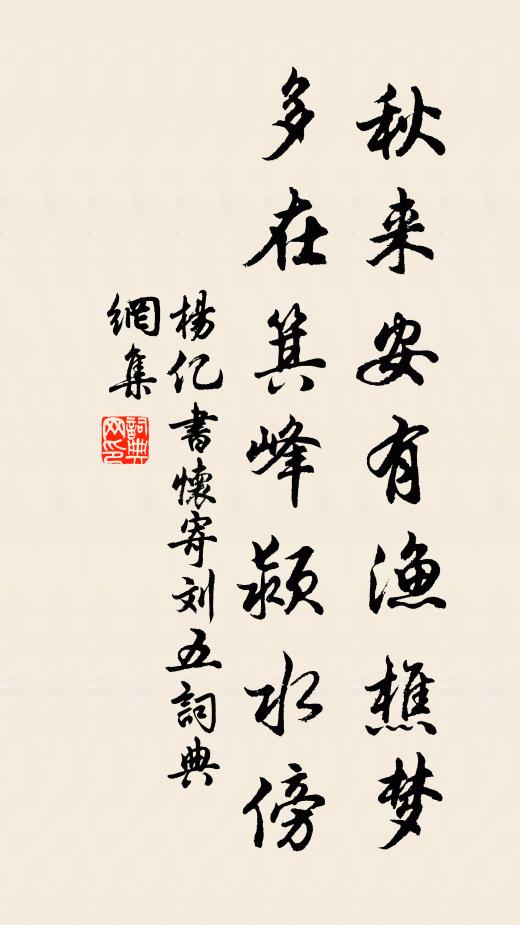 秋来安有渔樵梦
多在箕峰颍水傍
楊亿書懷寄刘五詞典
網集
詞典网印